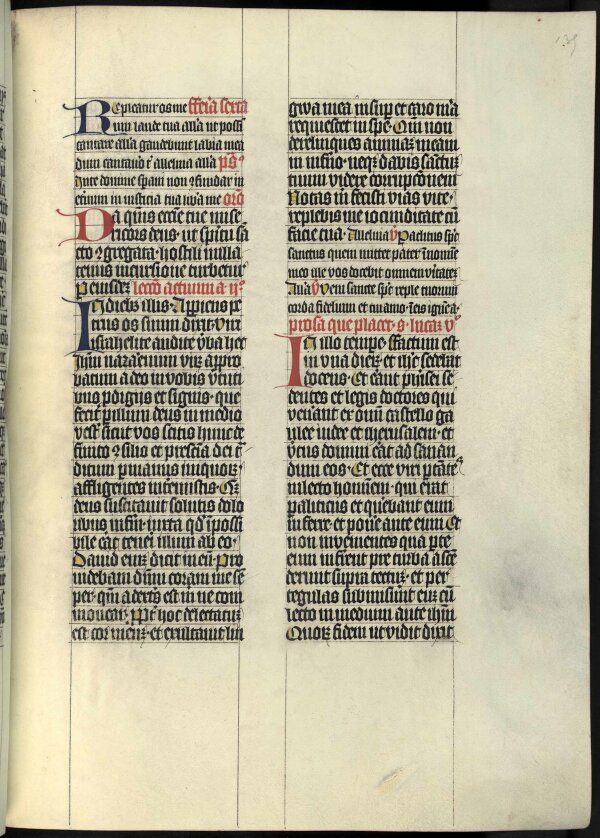 Repleatur os me feria sexta
um laude tua alla ut possi
cantare alla gaudebunt labia mea
dum cantavero tibi alleluia alla ps
In te domine speravi non confundar in
eternum in iusticia tua libera me oro
Da quis eccie tue mise
ricors deus · ut spiritu sa
cto congregata · hostili nulla
tenus incursione turbetur
Per eiusdem lectio actuum a ii
In diebus illis · Apperiens pe
trus os suum dixit · Viri
israhelite audite verba hec
Ihm nazarenum virum appro
batum a deo in vobis virtuti
bus prodigiis et signis · que
fecit per illum deus in medio
vestri sicut vos scitis hunc de
finito consilio et presciencia dei tra
ditum per manus iniquorum
affligentes interemistis · Quem
deus suscitavit solutis dolo
ribus inferni iuxta quod impossi
bile erat teneri illum ab eo ·
David enim dicit in eum Pro
videbam dnm coram me sem
per · qm a dextris est in ne com
movear · Propter hoc delectatum
est cor meum · et exultavit lin
gwa mea insuper et caro mea
requiescet in spe · Qm non
derelinques animam meam
in inferno · neque dabis sanctum
tuum videre corrupcionem
Notas mi fecisti vias vite ·
replebis me iocunditate cum
facie tua · Alleluia v Paclitus spiritus
sanctus quem mittet pater in nomine
meo ille vos docebit omnem veritatem
Alla v Veni sancte spiritus reple tuorum
corda fidelium et tui amoris in eis ignem a
prosa que placet · s · lucam v
In illo tempore · Factum est
in una dierum et ihc sedebat
docens · Et erant pharisei se
dentes et legis doctores qui
venerant ex omni castello ga
lilee iudee et iherusalem · et
virtus domini erat ad sanan
dum eos · Et ecce viri portantes
in lecto hominem · qui erat
paliticus et querebant eum
inferre et ponere ante eum Et
non invenientes qua parte
eum inferrent pre turba ascen
derunt supra tectum · et per
tegulas submiserunt eum cum
lecto in medium ante ihm
Quorum fidem ut vidit dixit